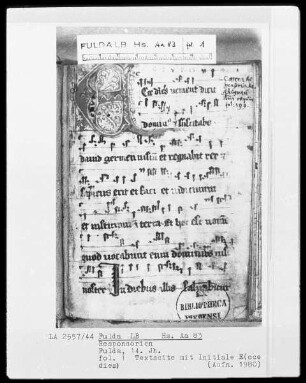 FULDA LB Hs. Aa 83 fol 1
cce dies ueniunt dicit
dominus et suscitabo
dauid germen iustum et regnabit rex et
sapiens erit et faciet iudicium
et iusticiam in terra et hoc est nomen
quod uocabunt eum dominus ius
noster In diebus illis saluabitur
BIBLIOTHECA
LA 2557/44 Fulda LB Hs. Aa 83
Responsorien
Fulda, 14. Jh.
fol. 1 Textseite mit Initiale E(cce
dies) (Aufn. 1980)